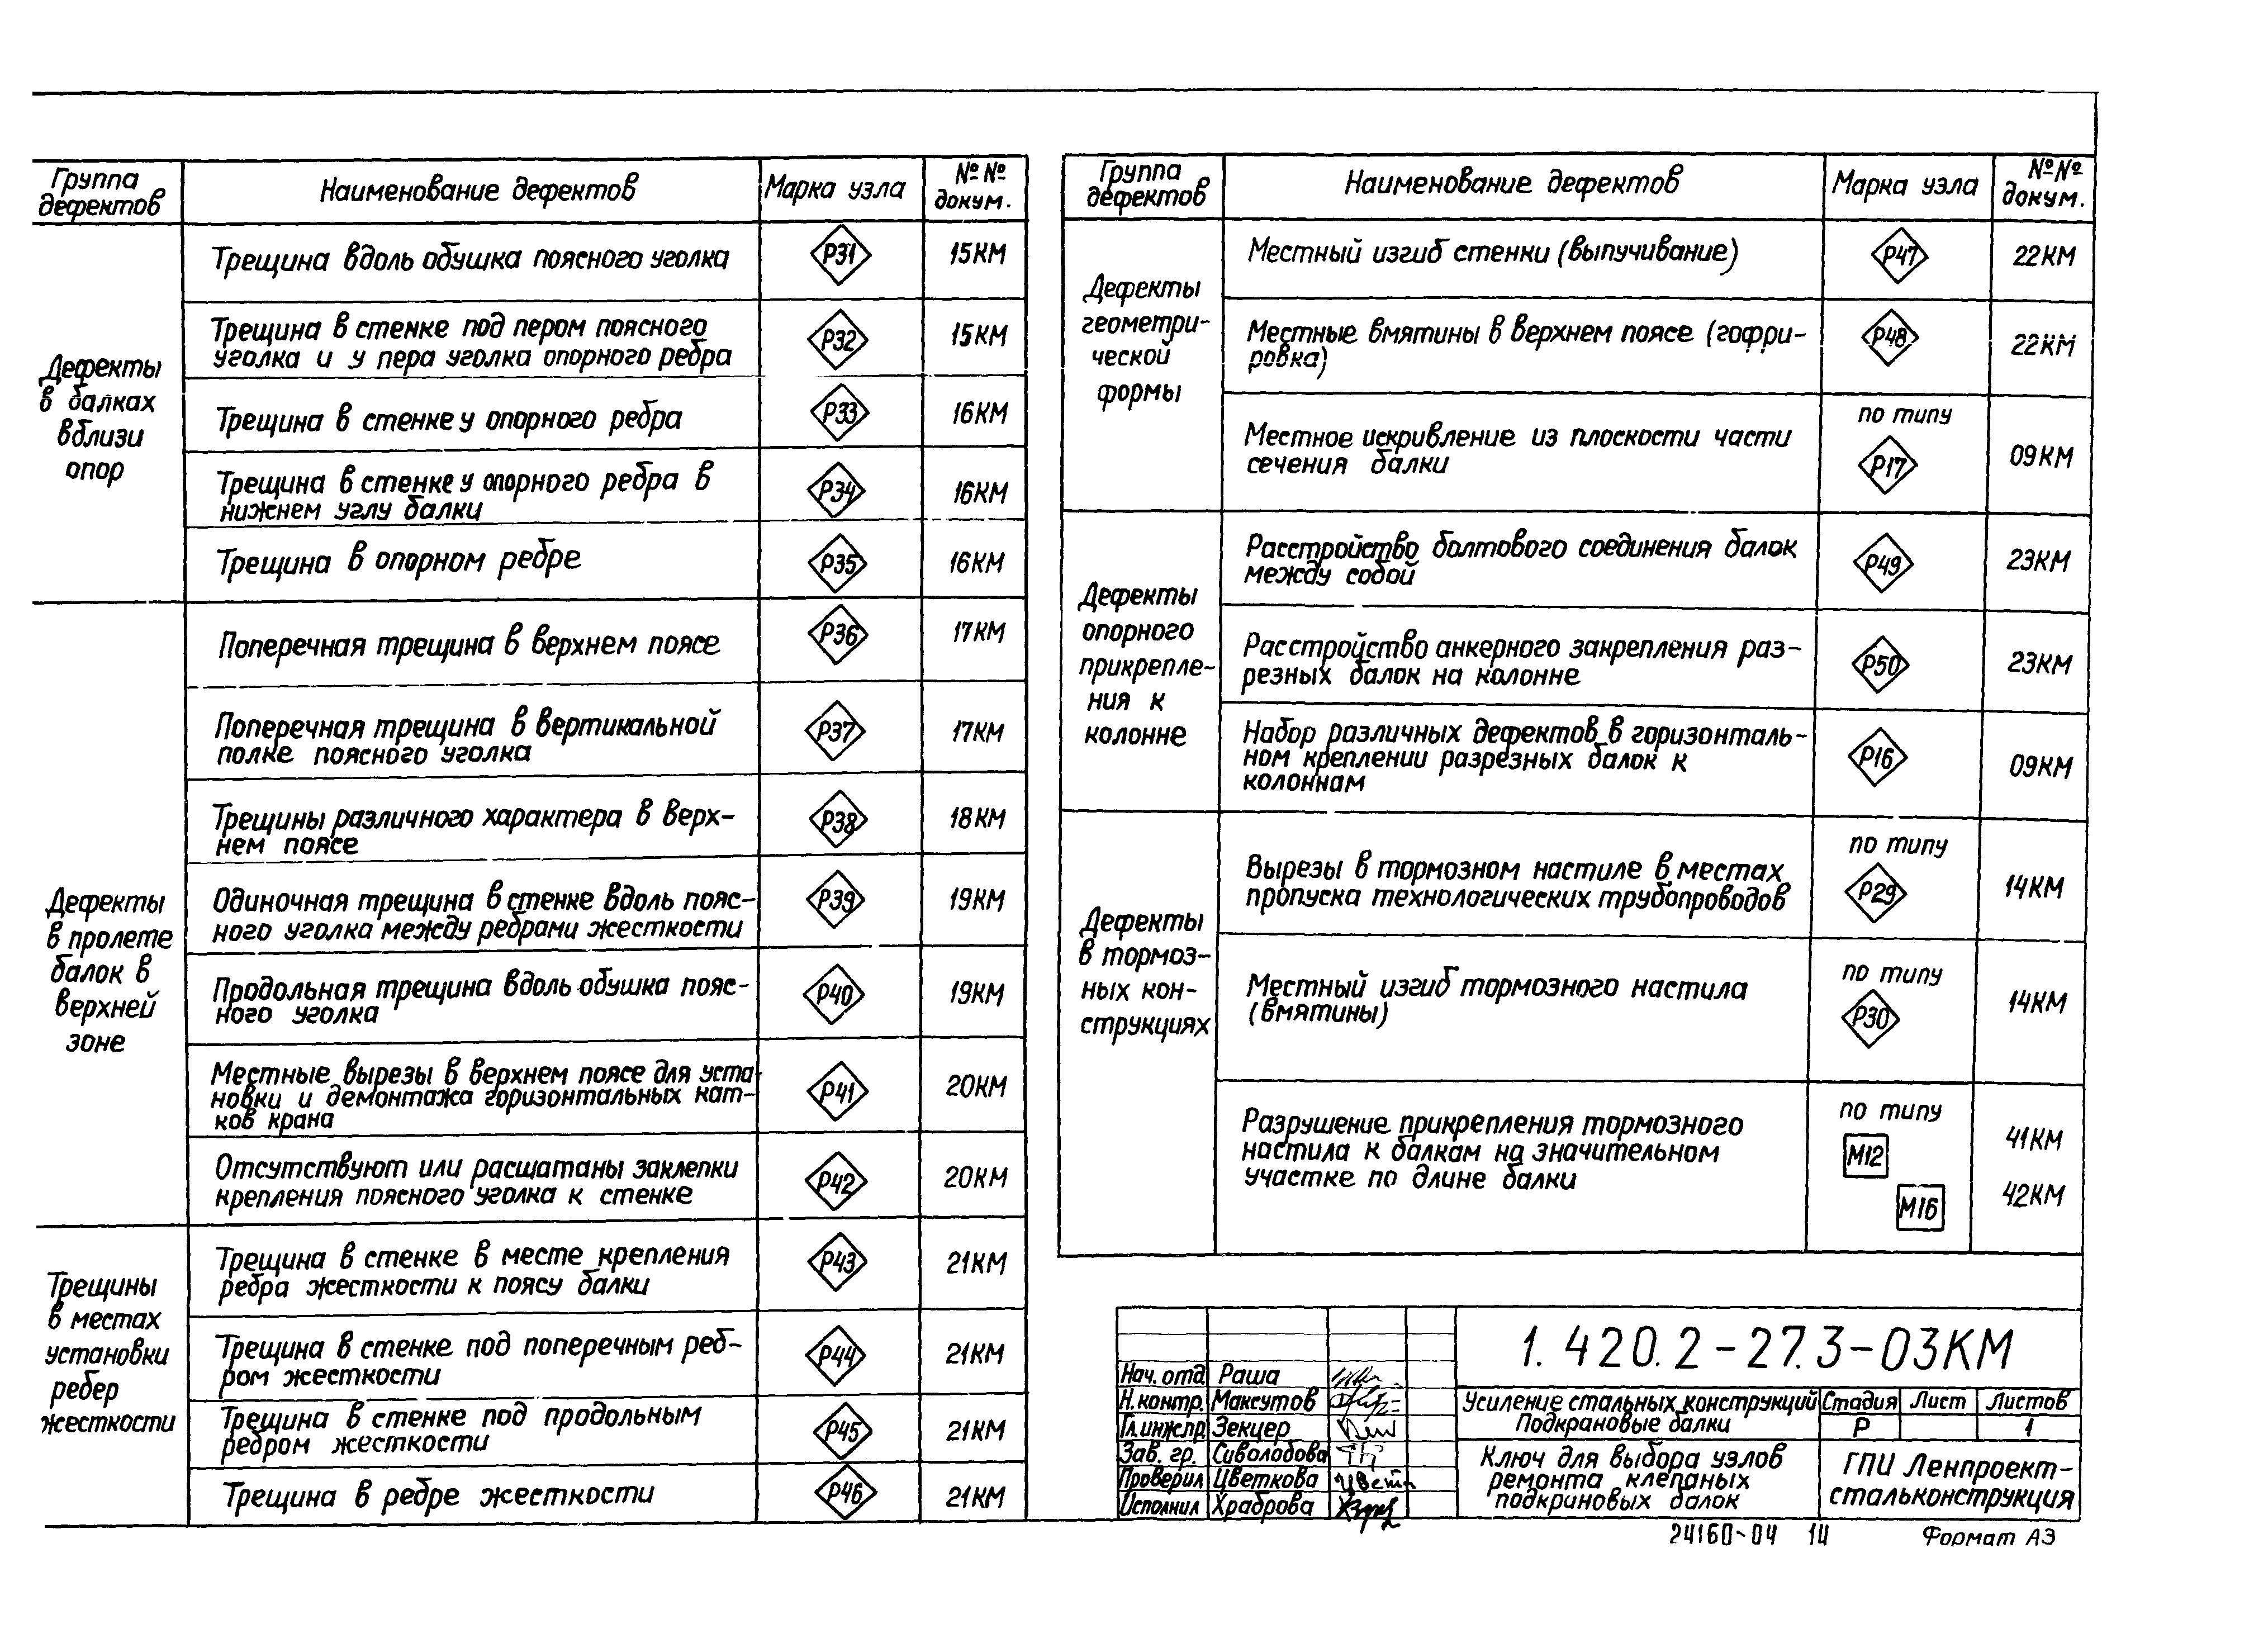 Группа дефектов
Наименование дефектов
Марка узла
№ № докум.
Дефекты
в балках
вблизи
опор
Трещина вдоль обушка поясного уголка
Р31
15КМ
Трещина в стенке под пером поясного
уголка и у пера уголка опорного ребра
Р32
15КМ
Трещина в стенке у опорного ребра
Р33
16КМ
Трещина в стенке у опорного ребра в
нижнем углу балки
Р34
16КМ
Трещина в опорном ребре
Р35
16КМ
Дефекты
в пролете
балок в
верхней
зоне
Поперечная трещина в верхнем поясе
Р36
17КМ
Поперечная трещина в вертикальной
полке поясного уголка
Р37
17КМ
Трещины различного характера в верх-
нем поясе
Р38
18КМ
Одиночная трещина в стенке вдоль пояс-
ного уголка между ребрами жесткости
Р39
19КМ
Продольная трещина вдоль обушка пояс-
ного уголка
Р40
19КМ
Местные вырезы в верхнем поясе для уста-
новки и демонтажа горизонтальных кат-
ков крана
Р41
20КМ
Отсутствуют или расшатаны заклепки
крепления поясного уголка к стенке
Р42
20КМ
Трещины
в местах
установки
ребер
жесткости
Трещина в стенке в месте крепления
ребра жесткости к поясу балки
Р43
21КМ
Трещина в стенке под поперечным реб-
ром жесткости
Р44
21КМ
Трещина в стенке под продольным
ребром жесткости
Р45
21КМ
Трещина в ребре жесткости
Р46
21КМ
Группа дефектов
Наименование дефектов
Марка узла
№ № докум.
Дефекты
геометри-
ческой
формы
Местный изгиб стенки (выпучивание)
Р47
22КМ
Местные вмятины в верхнем поясе (гофри-
ровка)
Р48
22КМ
Местное искривление из плоскости части
сечения балки
по типу
Р17
09КМ
Дефекты
опорного
прикрепле-
ния к
колонне
Расстройство болтового соединения балок
между собой
Р49
23КМ
Расстройство анкерного закрепления раз-
резных балок на колонне
Р50
23КМ
Набор различных дефектов в горизонталь-
ном креплении разрезных балок к
колоннам
Р16
09КМ
Дефекты
в тормоз-
ных кон-
струкциях
Вырезы в тормозном настиле в местах
пропуска технологических трубопроводов
по типу
Р29
14КМ
Местный изгиб тормозного настила
(вмятины)
по типу
Р30
14КМ
Разрушение прикрепления тормозного
настила к балкам на значительном
участке по длине балки
по типу
М12
41КМ
М16
42КМ
1.420.2-27.3-03КМ
Нач. отд. Раша
Н.контр. Максутов
Гл.инж.пр. Зекцер
Зав. гр. Сиволодова
Проверил Цветкова Цвет
Исполнил Храброва
Усиление стальных конструкций
Подкрановые балки
Стадия Лист Листов
Р 1
Ключ для выбора узлов
ремонта клепаных
подкрановых балок
ГПИ Ленпроект-
стальконструкция
24160-04 14
Формат А3